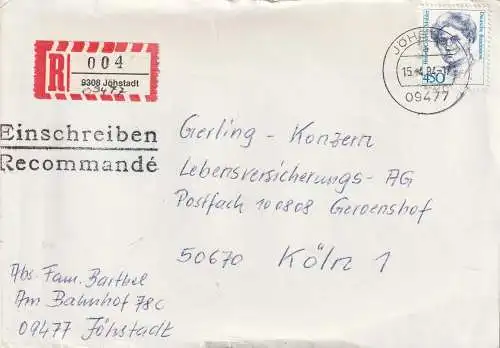 R
004
9308 Jöhstadt
09477
Einschreiben
Recommandé
450
15.
09477
Gerling - Konzern
Lebensversicherungs - AG
Postfach 100808 Geroenshof
50670 Köln 1
Abs. Fam. Barthel
Am Bahnhof 78c
09477 Jöhstadt